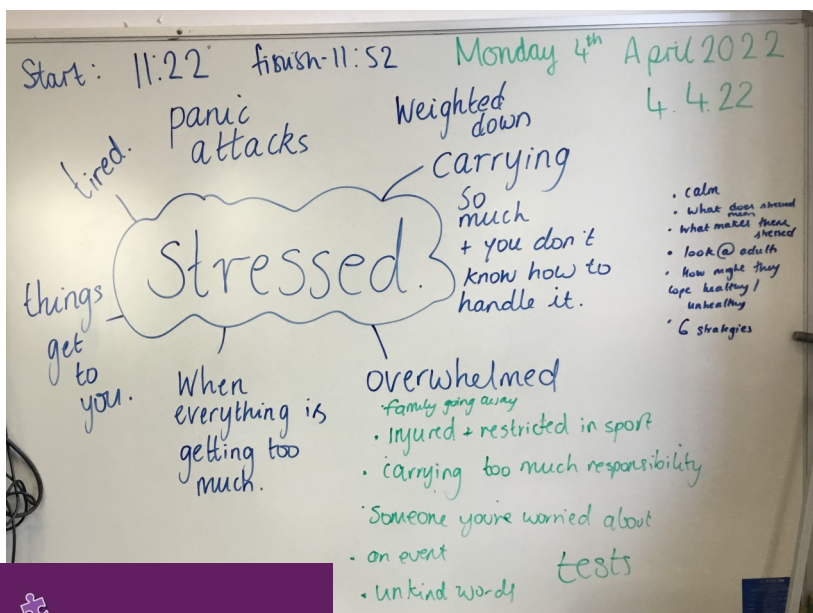 Start: 11:22 finish-11:52
Monday 4th April 2022
4.4.22
tired.
panic
attacks
Weighted
down
carrying
so
much
+ you don't
know how to
handle it.
Stressed.
things
get
to
you.
When
everything is
getting too
much.
overwhelmed
• family going away
• injured + restricted in sport
• carrying too much responsibility
• Someone you're worried about
• an event
tests
• unkind words
• calm
• what does stressed
mean
• what makes them
stressed
• look @ adults
• How might they
cope healthy/
unhealthy
• 6 strategies